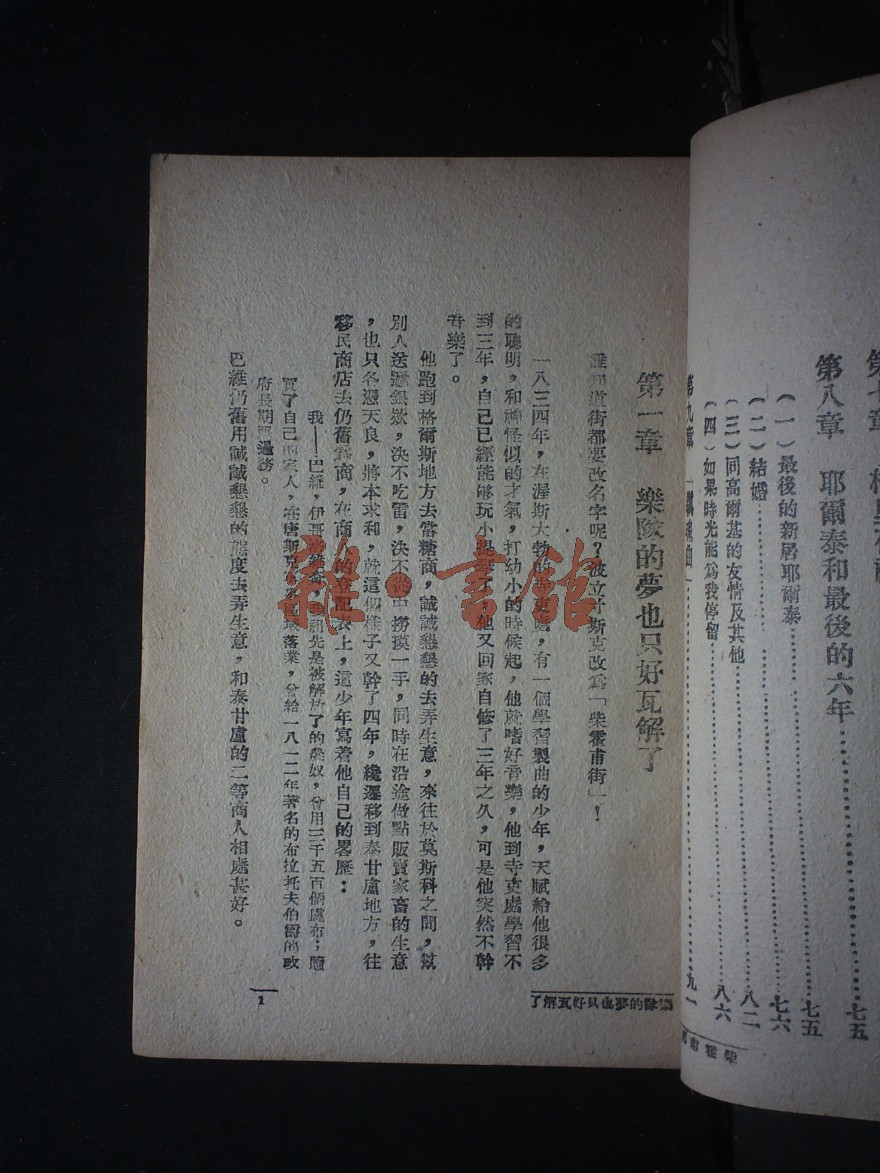 第八章　耶爾泰和最後的六年…………七五
（一）最後的新居耶爾泰…………七五
（二）結婚…………七六
（三）同高爾基的友情及其他…………八二
（四）如果時光能爲我停留…………八六
第九章…………九一
第一章　樂隊的夢也只好瓦解了
誰知道街都要改名字呢？波立才斯克改爲「柴霍甫街」！
一八三四年，在渥斯大勃的寺更處，有一個學習製曲的少年，天賦給他很多
的聰明，和神怪似的才氣，打幼小的時候起，他就嗜好音樂，他到寺更處學習不
到三年，自己已經能够玩小提琴了，他又回家自修了三年之久，可是他突然不幹
音樂了。
他跑到格爾斯地方去當糖商，誠誠懇懇的去弄生意，來往於莫斯科之間，換
別人送遞銀欵，決不吃雷，決不從中撈摸一手，同時在沿途做點販賣家畜的生意
，也只各憑天良，將本求利，就這個樣子又幹了四年，纔遷移到泰甘盧地方，往
移民商店去仍舊賣商，在商的登記表上，這少年寫着他自己的畧歷：
我——巴維，伊哥洛維奇，祖先是被解放了的農奴，曾用三千五百個盧布；贖
買了自己的家人，在唐斯克落業，曾給一八一二年著名的布拉托夫伯爵的政
府長期服過務。
巴維仍舊用誠誠懇懇的態度去弄生意，和泰甘盧的二等商人相處甚好。
樂隊的夢也只好瓦解了
1
雜·書館